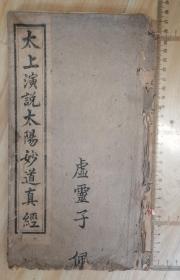 太上演說太陽妙道真經
虛靈子 佩